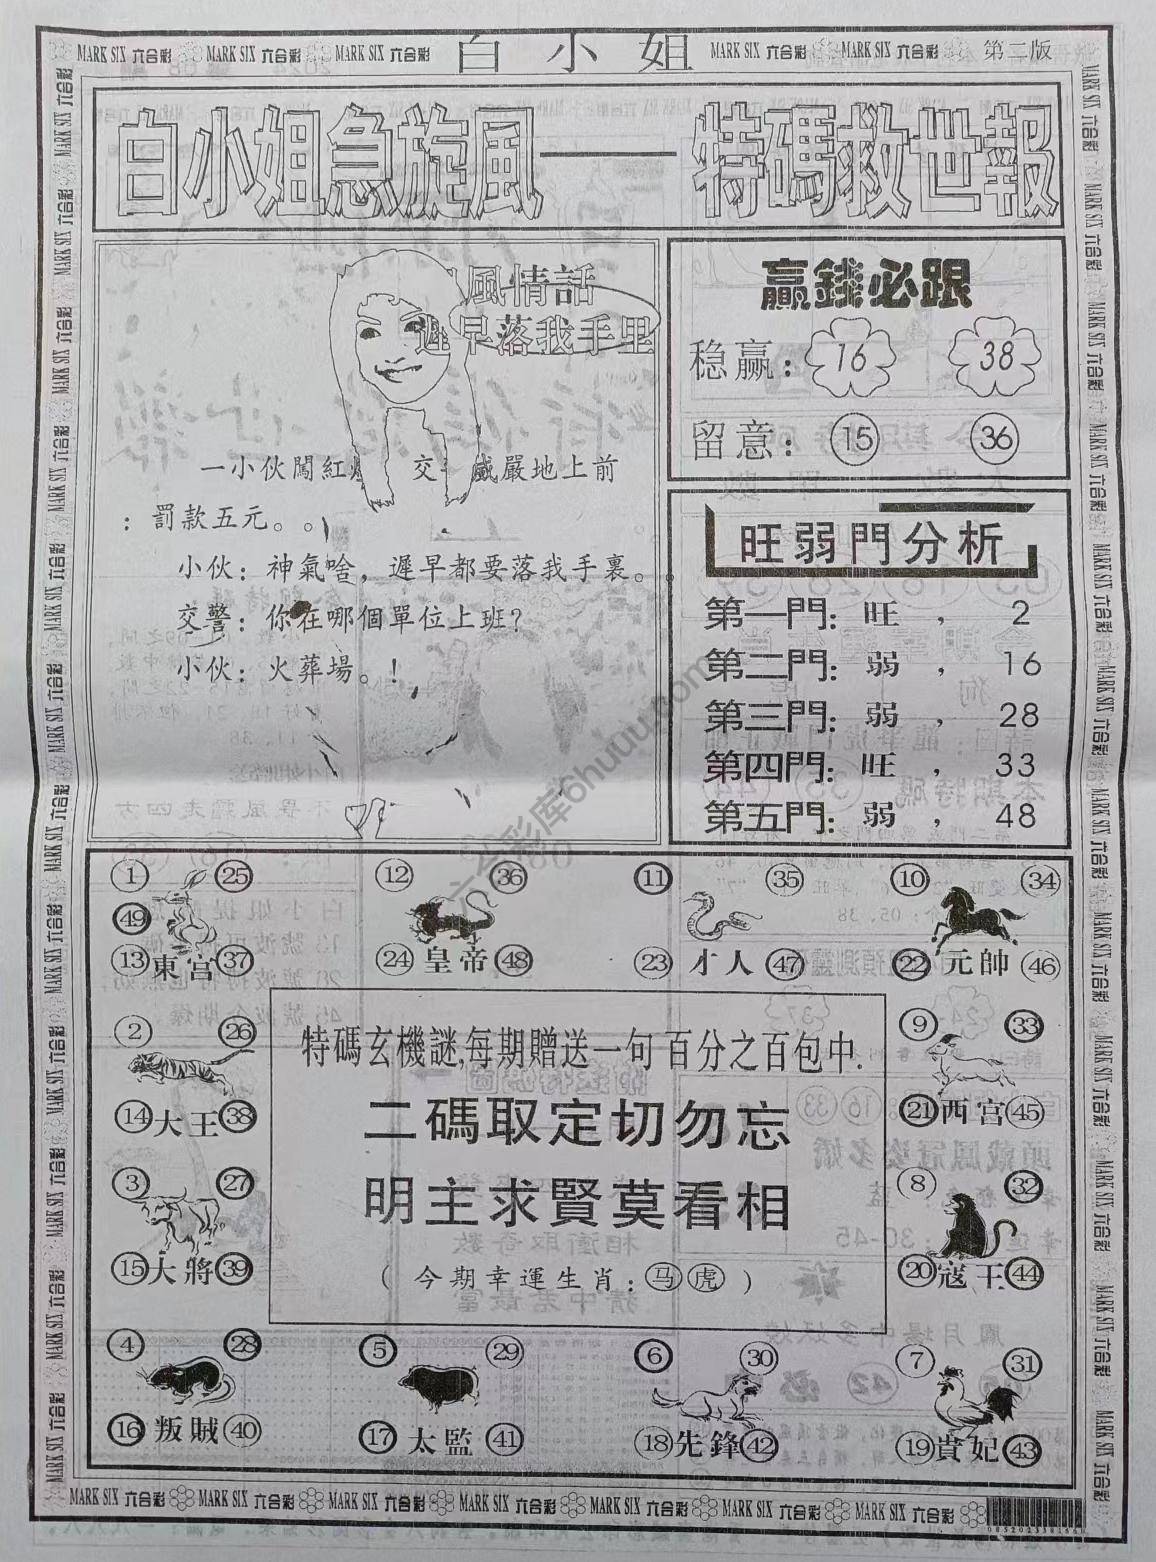 MARK SIX 六合彩 MARK SIX 六合彩 MARK SIX 六合彩 白小姐 MARK SIX 六合彩 MARK SIX 六合彩 第二版
白小姐急旋風——特碼救世報
風情話
遲早落我手里
一小伙闖紅 交 威嚴地上前
：罰款五元。
小伙：神氣啥，遲早都要落我手裏。
交警：你在哪個單位上班？
小伙：火葬場。！
贏錢必跟
稳赢： 16 38
留意： 15 36
旺弱門分析
第一門：旺， 2
第二門：弱， 16
第三門：弱， 28
第四門：旺， 33
第五門：弱， 48
1 25
49
13 東宫 37
12 36
24 皇帝 48
11 35
23 才人 47
10 34
22 元帥 46
2 26
14 大王 38
9 33
21 西宫 45
3 27
15 大將 39
8 32
20 寇王 44
特碼玄機謎,每期贈送一句百分之百包中.
二碼取定切勿忘
明主求賢莫看相
（今期幸運生肖：马虎）
4 28
16 叛賊 40
5 29
17 太監 41
6 30
18 先鋒 42
7 31
19 貴妃 43
六合彩库6huuu.com
MARK SIX 六合彩 MARK SIX 六合彩 MARK SIX 六合彩 MARK SIX 六合彩 MARK SIX 六合彩 MARK SIX 六合彩 MARK SIX 六合彩